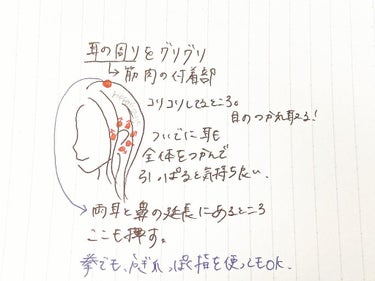 耳の周りをグリグリ
筋肉の付着部
コリコリしてるところ。
目のつかれ取れる!
ついでに耳も
全体をつかんで
引っぱると気持ちいい。
両耳と鼻の延長にあるところ
ここも押す。
拳でも、っぽく指を使ってもOK.